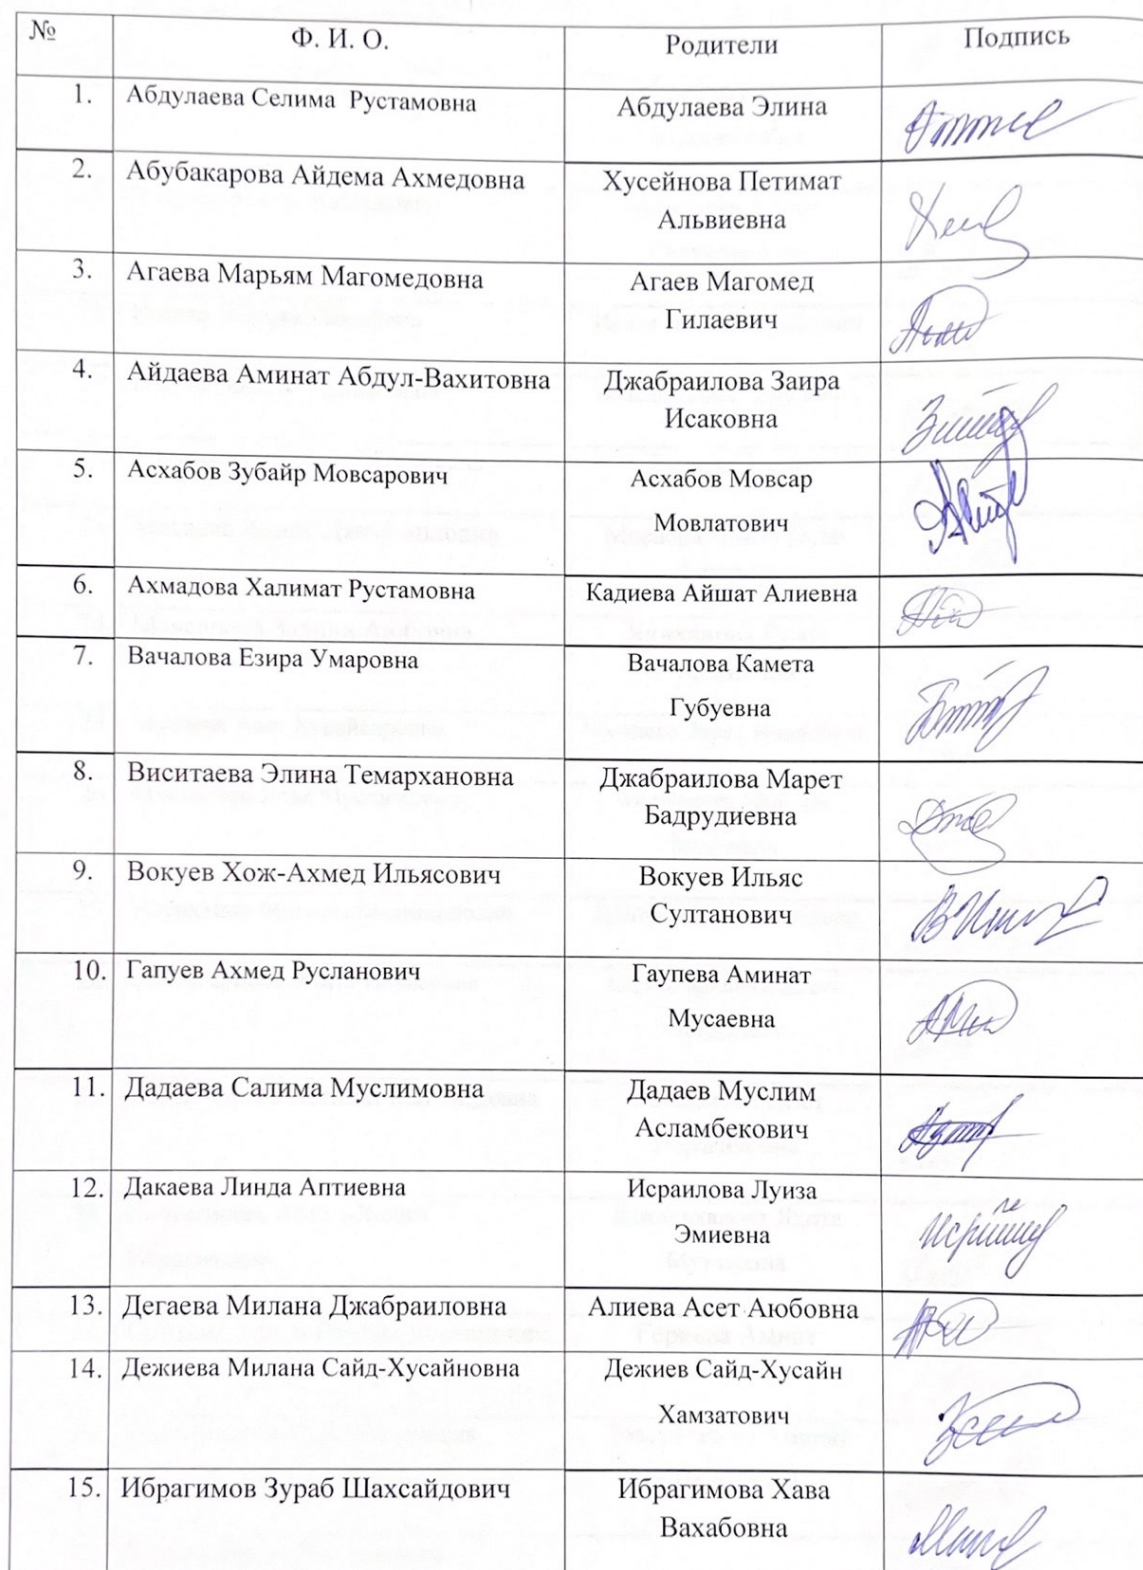 № Ф. И. О. Родители Подпись
1. Абдулаева Селима Рустамовна Абдулаева Элина
2. Абубакарова Айдема Ахмедовна Хусейнова Петимат
Альвиевна
3. Агаева Марьям Магомедовна Агаев Магомед
Гилаевич
4. Айдаева Аминат Абдул-Вахитовна Джабраилова Заира
Исаковна
5. Асхабов Зубайр Мовсарович Асхабов Мовсар
Мовлатович
6. Ахмадова Халимат Рустамовна Кадиева Айшат Алиевна
7. Вачалова Езира Умаровна Вачалова Камета
Губуевна
8. Виситаева Элина Темархановна Джабраилова Марет
Бадрудиевна
9. Вокуев Хож-Ахмед Ильясович Вокуев Ильяс
Султанович
10. Гапуев Ахмед Русланович Гаупева Аминат
Мусаевна
11. Дадаева Салима Муслимовна Дадаев Муслим
Асламбекович
12. Дакаева Линда Аптиевна Исраилова Луиза
Эмиевна
13. Дегаева Милана Джабраиловна Алиева Асет Аюбовна
14. Дежиева Милана Сайд-Хусайновна Дежиев Сайд-Хусайн
Хамзатович
15. Ибрагимов Зураб Шахсайдович Ибрагимова Хава
Вахабовна